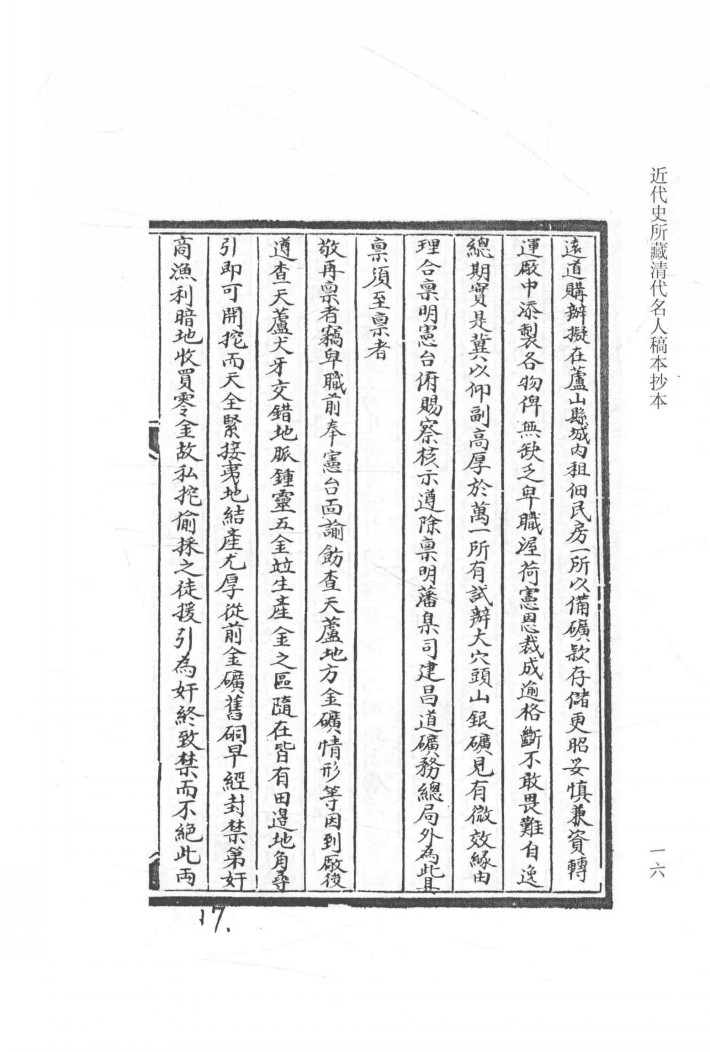 近代史所藏清代名人稿本抄本
一六
遠道購辦擬在蘆山縣城內租佃民房一所以備礦款存儲更昭妥慎兼資轉
運廠中添製各物俾無缺乏卑職渥荷憲恩裁成逾格斷不敢畏難自逸
總期實是冀以仰副高厚於萬一所有試辦大穴頭山銀礦見有微效緣由
理合稟明憲台俯賜察核示遵除稟明藩臬司建昌道礦務總局外為此具
稟須至稟者
敬再稟者竊卑職前奉憲台面諭飭查天蘆地方金礦情形等因到廠後
遵查天蘆犬牙交錯地脈鍾靈五金竝生產金之區隨在皆有田邊地角尋
引即可開挖而天全緊接夷地結產尤厚從前金礦舊硐早經封禁第奸
商漁利暗地收買零金故私挖偷採之徒援引為奸終致禁而不絕此兩
17.